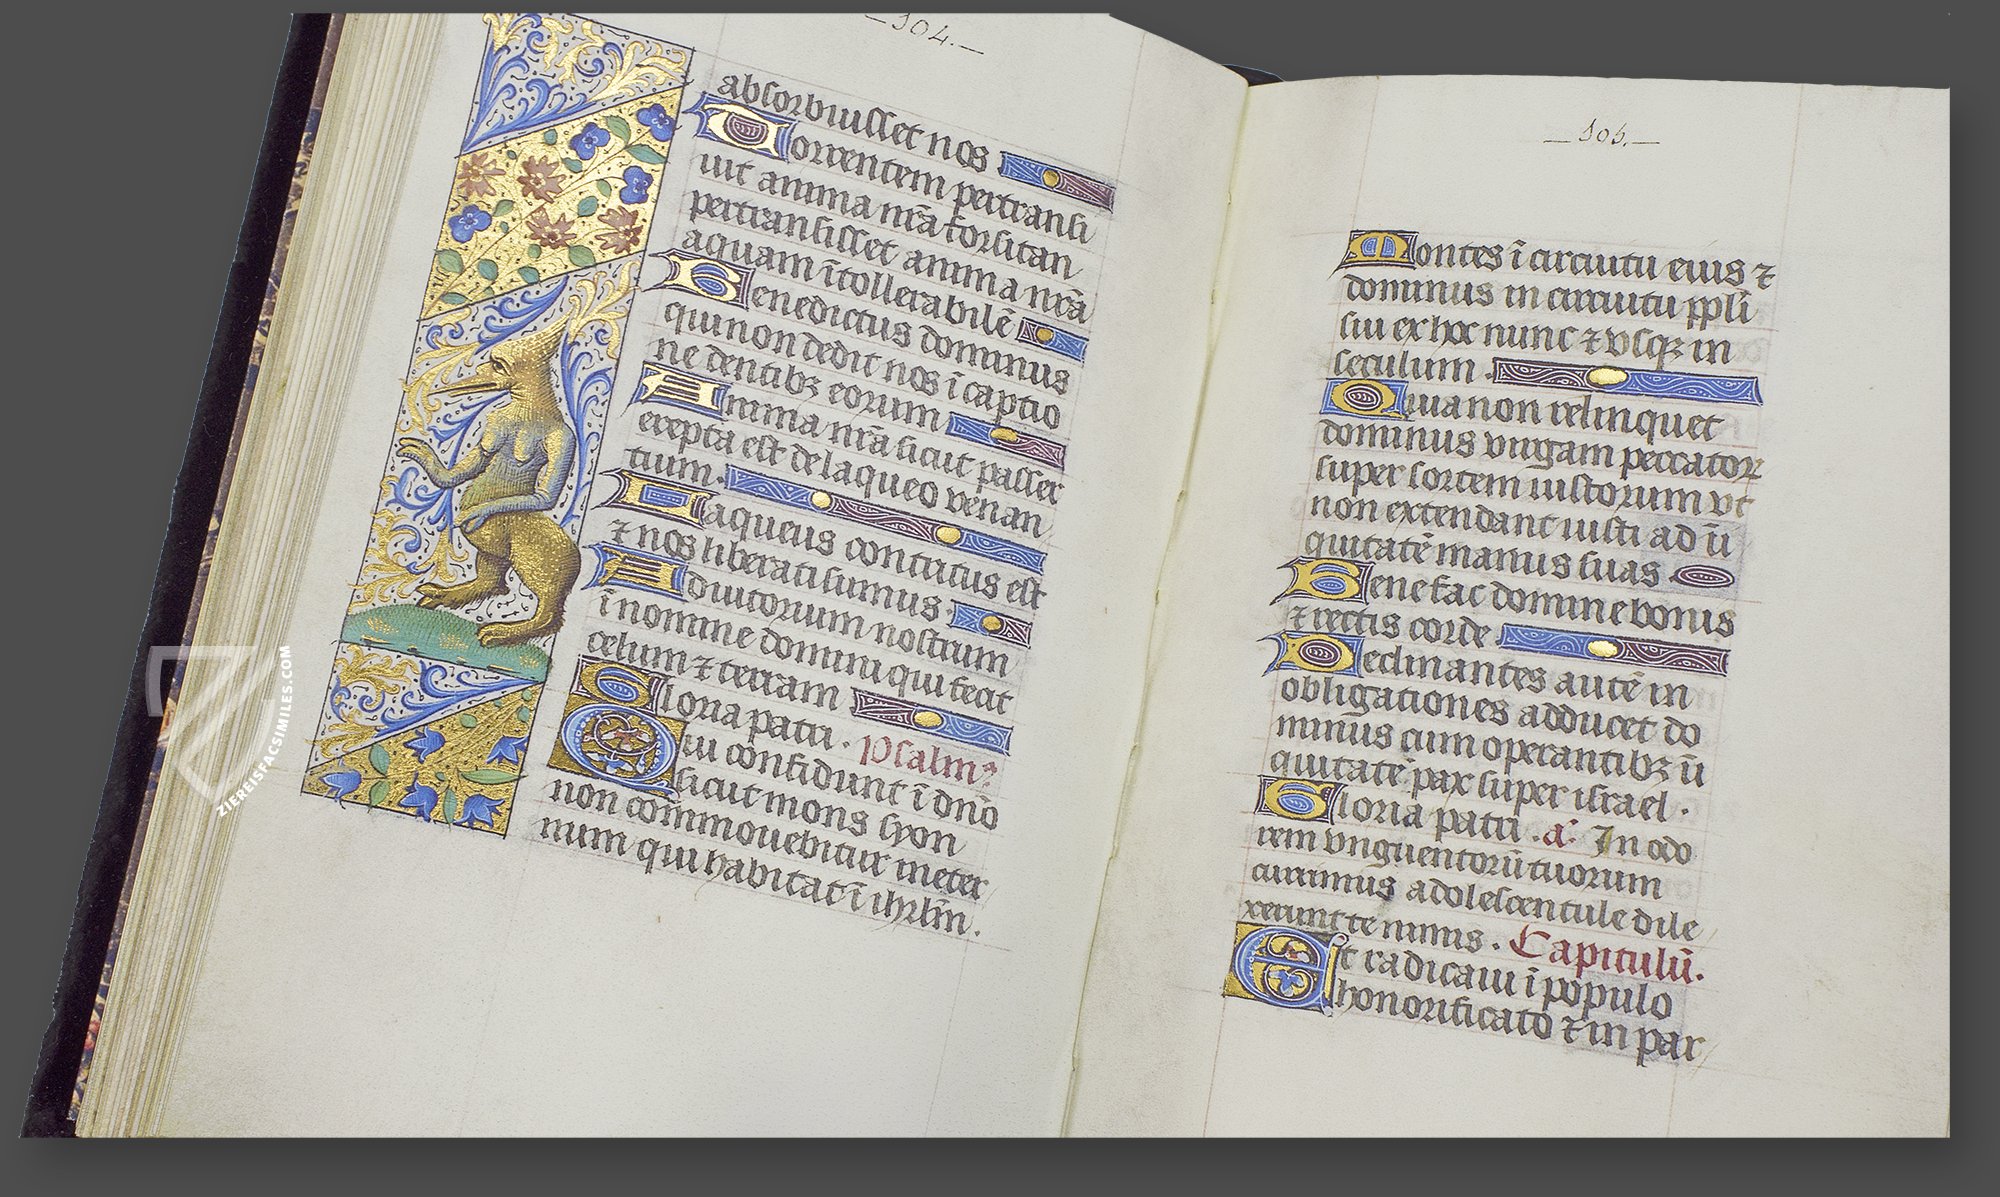 —104.—
absorbuisset nos
Torrentem pertransi
uit anima nr̃a forsitan
pertransisset anima nr̃a
aquam ĩtollerabilẽ
Benedictus dominus
qui non dedit nos ĩ captio
ne dentibꝫ eorum
Anima nr̃a sicut passer
erepta est de laqueo venan
tium.
Laqueus contritus est
⁊ nos liberati sumus.
Adiutorium nostrum
ĩ nomine domini qui fecit
celum ⁊ terram
Gloria patri. Psalmꝫ
Qui confidunt ĩ dño
sicut mons syon
non cõmouebitur ineter
num qui habitat ĩ ihrlm̃.
—105.—
Montes ĩ circuitu eius ⁊
dominus in circuitu ppl̃i
sui ex hoc nunc ⁊ vsqꝫ in
seculum.
Quia non relinquet
dominus virgam peccatorꝝ
super sortem iustorum vt
non extendant iusti ad ĩi
quitatẽ manus suas.
Benefac domine bonis
⁊ rectis corde
Declinantes autẽ in
obligationes adducet do
minus cum operantibꝫ ĩi
quitatẽ pax super israel.
Gloria patri. a͂. In odo
rem vnguentorũ tuorum
currimus adolescentule dile
xerunt te nimis. Capitulũ.
Et radicaui ĩ populo
honorificato ⁊ in par
ZIEREISFACSIMILES.COM